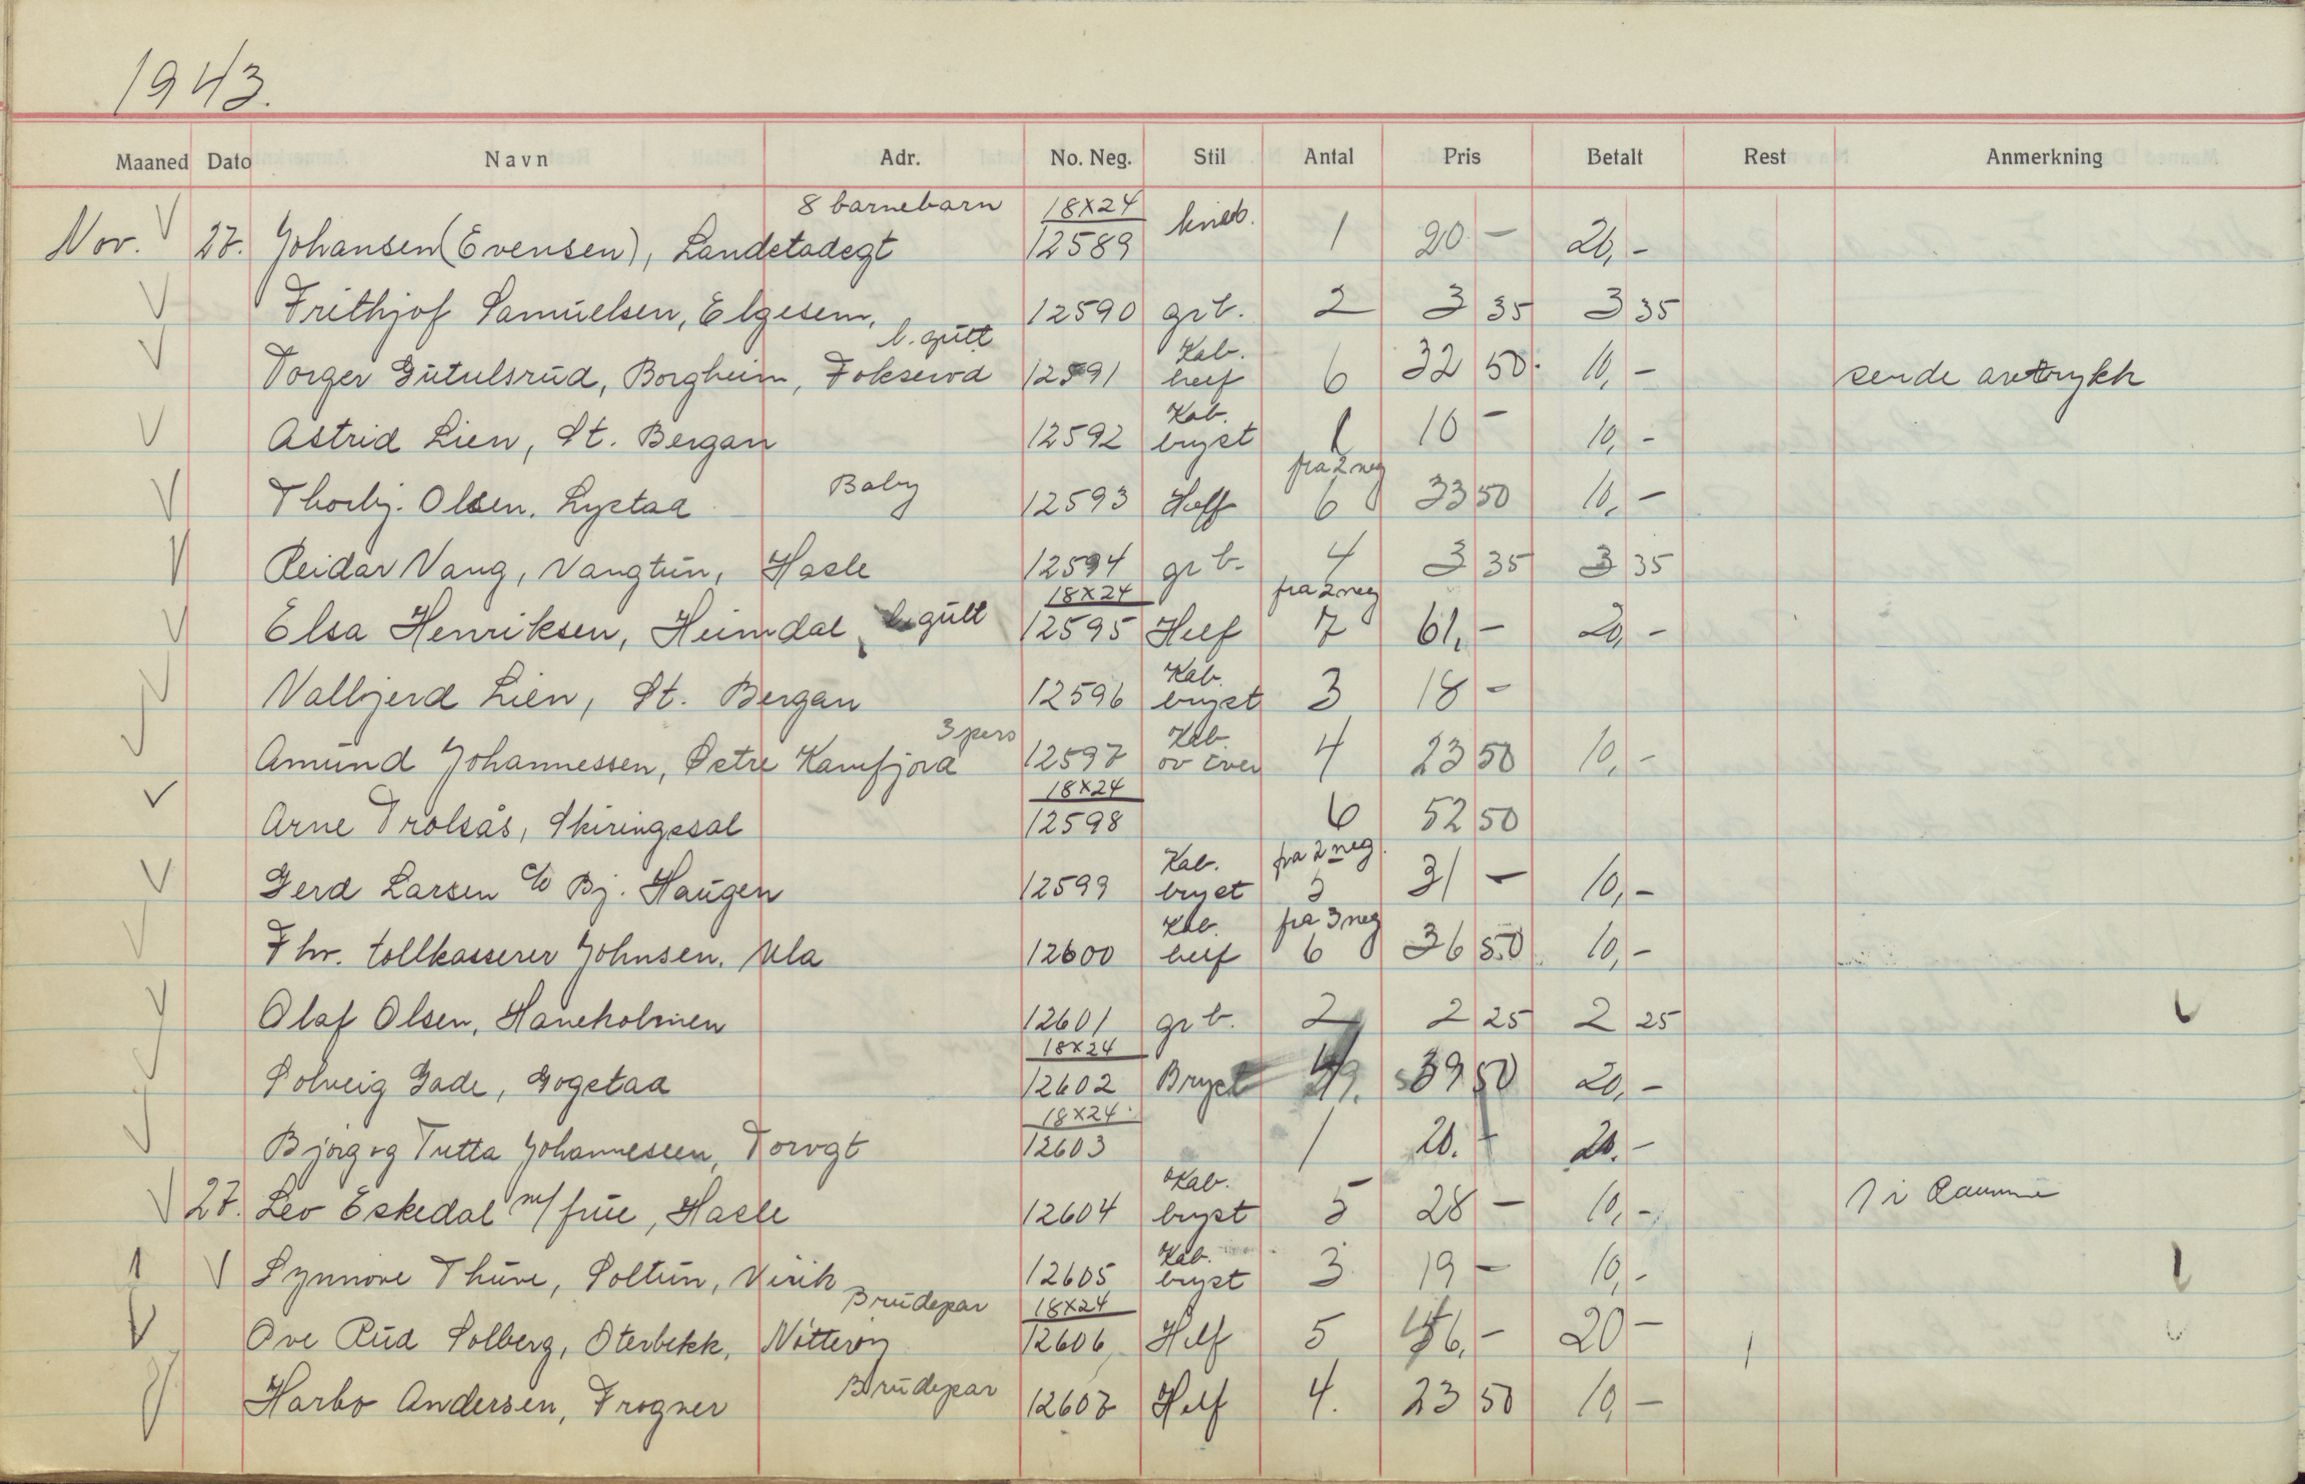 1943.
Maaned Dato Navn Adr. No. Neg. Stil Antal Pris Betalt Rest Anmerkning
8 barnebarn 18x24
Nov. 27. Johansen (Evensen), Landstadsgt 12589 kneb. 1 20 - 20,-
Frithjof Samuelsen, Elgesem, 12590 gr b. 2 3 35 3 35
l. gutt Kab.
Torger Gutulsrud, Borgheim, Fokserød 12591 helf 6 32 50. 10,- sende avtrykk
Kab.
Astrid Lien, St. Bergan 12592 bryst 1 10 - 10,-
Baby fra 2 neg
Thorbj. Olsen, Lystad 12593 Helf 6 33 50 10,-
Reidar Vang, Vangtun, Hasle 12594 gr b. 4 3 35 3 35
18x24 fra 2 neg
Elsa Henriksen, Heimdal, l. gutt 12595 Helf 7 61,- 20,-
Kab.
Valbjerd Lien, St. Bergan 12596 bryst 3 18 -
3 pers Kab.
Amund Johannessen, Østre Kamfjord 12597 4 23 50 10,-
18x24
Arne Trolsås, Skiringssal 12598 6 52 50
Kab. fra 2 neg.
Gerd Larsen c/o Bj. Haugen 12599 bryst 5 31 - 10,-
Kab. fra 3 neg
Fhr. tollkasserer Johnsen, Ula 12600 helf 6 36 50 10,-
Olaf Olsen, Haneholmen 12601 gr b. 2 2 25 2 25
18x24
Solveig Gade, Gogstad 12602 Bryst 39 50 20,-
18x24
Bjørg og Tutta Johannessen, Torvgt 12603 1 20.- 20.-
Kab.
27. Leo Eskedal m/ frue, Hasle 12604 bryst 5 28 - 10,- 1 i Ramme
Kab.
Synnøve Thune, Soltun, Virik 12605 bryst 3 19 - 10,-
Brudepar 18x24
Ove Rud Solberg, Oterbekk, Nøtterøy 12606 Helf 5 46,- 20 -
Brudepar
Harbo Andersen, Frogner 12607 Helf 4. 23 50 10,-